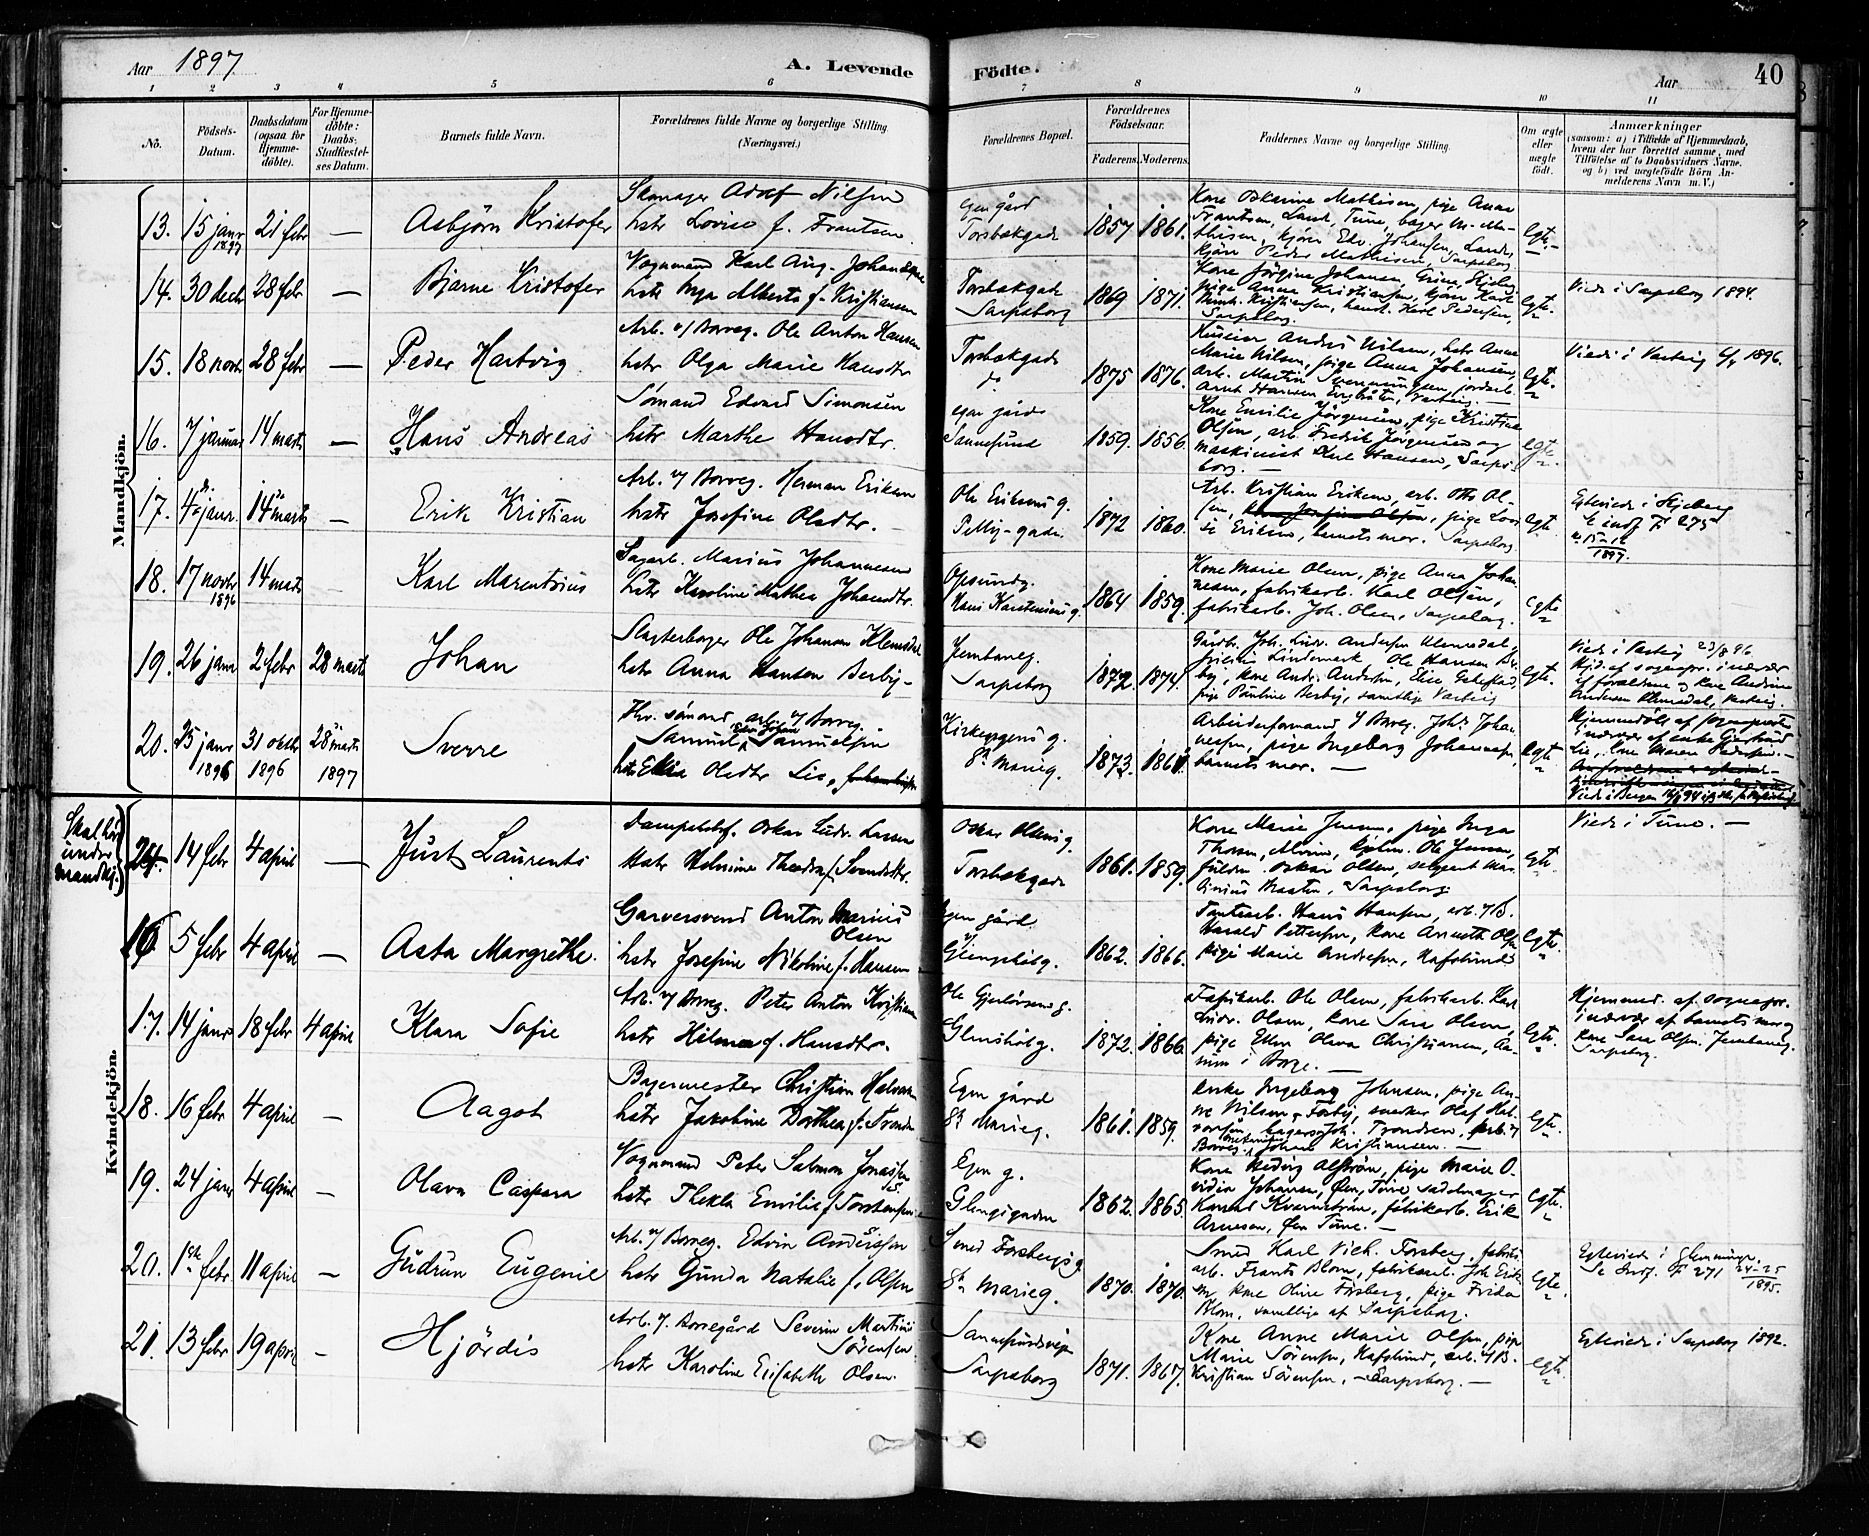 Aar 1897
A. Levende Födte.
Aar 40
1 2 3 4 5 6 7 8 9 10 11
No.
Födsels-Datum.
Daabsdatum (ogsaa for Hjemme-döbte).
For Hjemme-döbte: Daabs-Stadfæstel-ses Datum.
Barnets fulde Navn.
Forældrenes fulde Navne og borgerlige Stilling (Næringsvei.)
Forældrenes Bopæl.
Forældrenes Födselsaar.
Faderens. Moderens.
Faddernes Navne og borgerlige Stilling.
Om ægte eller uægte födt.
Anmærkninger
(saasom: a) i Tilfælde af Hjemmedaab,
hvem der har forrettet samme, med
Tilföielse af to Daabsvidners Navne.
og b) ved uægtefödte Börn An-
melderens Navn m. V.)
Mandkjön.
13. 15 janr 1897 21 febr — Asbjörn Kristofer
Skomager Adolf Nilsen
hstr Lovise f. Frantsen
Egen gård
Torsbækgade
1857 1861.
Kone Oskarine Mathisen, pige Anna
Frantsen, Lande, Tune, bager M. Ma-
thisen, kjörer Edv. Johansen, Lande,
kjörer Peder Mathisen, Sarpsborg
Egte.
14. 30 decbr 28 febr — Bjarne Kristofer
Vognmand Karl Aug. Johansen
hstr Inga Alberta f. Kristiansen
Torsbækgade
Sarpsborg
1869 1871.
Kone Jörgine Johansen,
pige Anna Kristiansen, kjörer Karl
Kristiansen, handl. Karl Pedersen,
Sarpsborg.
egte.
Viede i Sarpsborg 1894.
15. 18 novbr 28 febr — Peder Hartvig
Arb. v/ Borreg. Ole Anton Hansen
hstr Olga Marie Hansdtr
Torsbækgade
do
1875 1876.
Huseier Andreas Nilsen, hstr Anne
Marie Nilsen, pige Anna Johansen,
arb. Martin Svenningsen, jordarb.
Arnt Hansen
egte.
Viede i Varteig 6/4 1896.
16. 7 januar 14 marts — Hans Andreas
Sömand Edvard Simonsen
hstr Marthe Hansdtr.
egen gård
Sannesund
1859. 1856.
Kone Emilie Jörgensen, pige Kristine
Olsen, arb. Fredrik Jörgensen og
maskinist Karl Hansen, Sarps-
borg. —
egte
17. 4de janr. 14 marts — Erik Kristian
Arb. v/ Borreg. Herman Eriksen
hstr Josefine Olsdtr.
Ole Eriksens g.
Pellygade.
1872 1860.
Arb. Kristian Eriksen, arb. Otto Ol-
sen, pige Lovi-
se Eriksen, barnets mor. Sarpsborg.
egte
Egteviede i Skjeberg
Se indf. F 275
1897.
18. 17 novbr 1896 14 marts Karl Marentsius
Sagarb. Marius Johannesen
hstr Karoline Mathea Johansdtr.
Opsundg.
Hans Karstensens g.
1864 1859.
Kone Marie Olsen, pige Anna Johan-
nesen, fabrikarb. Karl Olsen,
fabrikarb. Joh. Olsen, Sarpsborg.
egte
19. 26 janr 2 febr 28 marts Johan
Slagterborger Ole Johansen Klemsdal
hstr Anna Hansen Berby.
Jernbaneg.
Sarpsborg
1872. 1874.
Gårdb. Joh. Ludv. Andersen Klemsdal,
Lindemark Ole Hansen Ber-
by, kone Andr. Andersen, Elise
pige Pauline Berby, samtlige Varteig
egte.
Viede i Varteig 23/8 96
Hjd. af sognepr. i nærvær
af forældrene og kone Andrine
Andersen Klemsdal, Varteig.
20. 25 janr 1896 31 oktbr 1896 28de marts 1897 Sverre
Fhv. sömand, arb. v/ Borreg.
Samuel Edin Johan Samuelsen
hstr Elisa Olsdtr Lie,
Kirkegygens g.
St Marieg.
1873. 1861.
Arbeidsformand v/ Borreg. Johs Johan-
nesen, pige Ingeborg Johannesen,
barnets mor. —
egte
Hjemmedöbt af sognepresten
i nærvær af enke Gjertrud
Lie, kone Maren Pedersen. —
Viede i Bergen
Skal høre under mandkj.
21. 14 febr 4 april — Just Laurents
Dampskibsf. Oskar Ludv. Larsen
Hstr Helmine Theodora f. Svendsdtr.
Oskar Olsens g.
Torsbækgade
1861. 1859.
Kone Marie Jensen, pige Inga
Thorsen, Moss, kjöbm. Ole Jensen,
fuldm. Oskar Olsen, sergent Mar-
tinius Braaten, Sarpsborg.
egte.
Viede i Tune. —
Kvindekjön.
16. 5 febr 4 april — Asta Margrethe.
Garversvend Anton Marius
Olsen
hstr Josefine Nikoline f. Hansen
Egen gård
Glengshölg.
1862. 1866.
Tomtearb. Hans Hansen, arb. v/ B.
Harald Pettersen, kone Anneth Olsen
pige Marie Andresen, Hafslund
egte.
17. 14 janr 18 febr 4 april Klara Sofie
Arb. v/ Borreg. Peter Anton Kristiansen
hstr Hilma f. Hansdtr.
Ole Gjerlövsens g.
Glenshölg.
1872. 1866.
Fabrikarb. Ole Olsen, fabrikarb. Karl
Ludv. Olsen, kone Sara Olsen,
pige Ellen Olava Christiansen, Aa-
num i Borge. —
egte.
Hjemmed. af sognepr.
i nærvær af barnets mor og
kone Sara Olsen, Jernbaneg.
Sarpsborg.
18. 16 febr 4 april — Aagot
Bagermester Christian Halvorsen
hstr Jakobine Dorthea f. Trondsen
Egen gård
St Marieg.
1861. 1859.
Enke Ingeborg Johnsen, pige An-
ne Nilsen Forby, snedker Olaf Hal-
vorsen, bagersv. Joh. Trondsen, arb. v/
Borreg. Johan Kristiansen. —
egte.
19. 24 janr 4 april — Olava Caspara
Vognmand Peter Salmon Jonassen
hstr Thekla Emilie f. Torstensen
Egen g.
Glengsgaden
1862. 1865.
Kone Hedvig Alström, pige Marie O-
vidia Johansen, Öen, Tune, sadelmager
Konrad Kvarnström, fabrikarb. Erik
Arnesen, Öen Tune. —
egte.
20. 1ste febr. 11 april — Gudrun Eugenie
Arb. v/ Borreg. Edvin Anderssen
hstr Gunda Natalie f. Olsen
Smed Forsbergs g.
St. Marieg.
1870. 1870.
Smed Karl Vich. Forsberg, fabrik-
arb. Frants Blom, fabrikarb. Joh. Erik-
sen, kone Oline Forsberg, pige Frida
Blom, samtlige af Sarpsborg.
egte.
Egteviede i Glemminge,
Se Indf. F 271
1895.
21. 13 febr 19 april — Hjördis
Arb. v. Borregård Severin Martin
Sörensen
hstr Karoline Elisabeth Olsen.
Sannesundsvej
Sarpsborg
1871. 1867.
Kone Anne Marie Olsen, pige
Marie Sörensen, Hafslund, arb. v/ B.
Kristian Sörensen, Sarpsborg. —
egte.
Egteviede i Sarpsborg 1892.